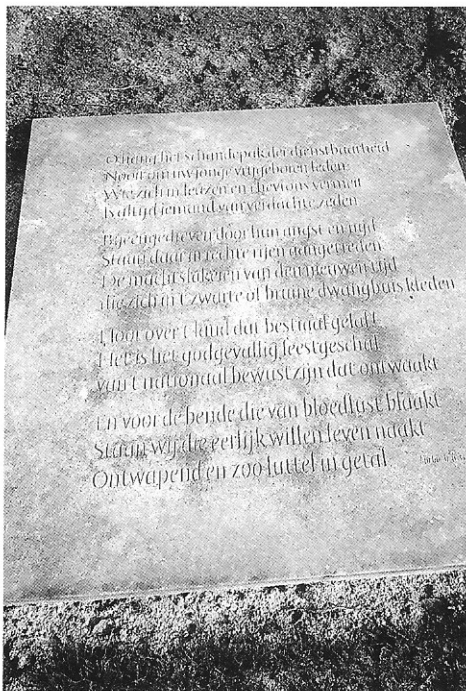 O hang het schandepak der dienstbaarheid
Nooit om uw jonge vrijgeboren leden:
Wie zich in leazen en chevrons vermeit
Is altijd iemand van verdachte zeden
Bijeengedreven door hun angst en nijd
Staan daar in rechte rijen aangetreden
De machtslakeien van den nieuwen tijd
die zich in t zwarte of bruine dwangbuis kleeden
Hoor over t land dat bestiaal gelal:
Het is het godgevallig feestgeschal
van t nationaal bewustzijn dat ontwaakt
En voor de bende die van bloedlust blaakt
Staan wij die eerlijk willen leven naakt
Ontwapend en zoo luttel in getal